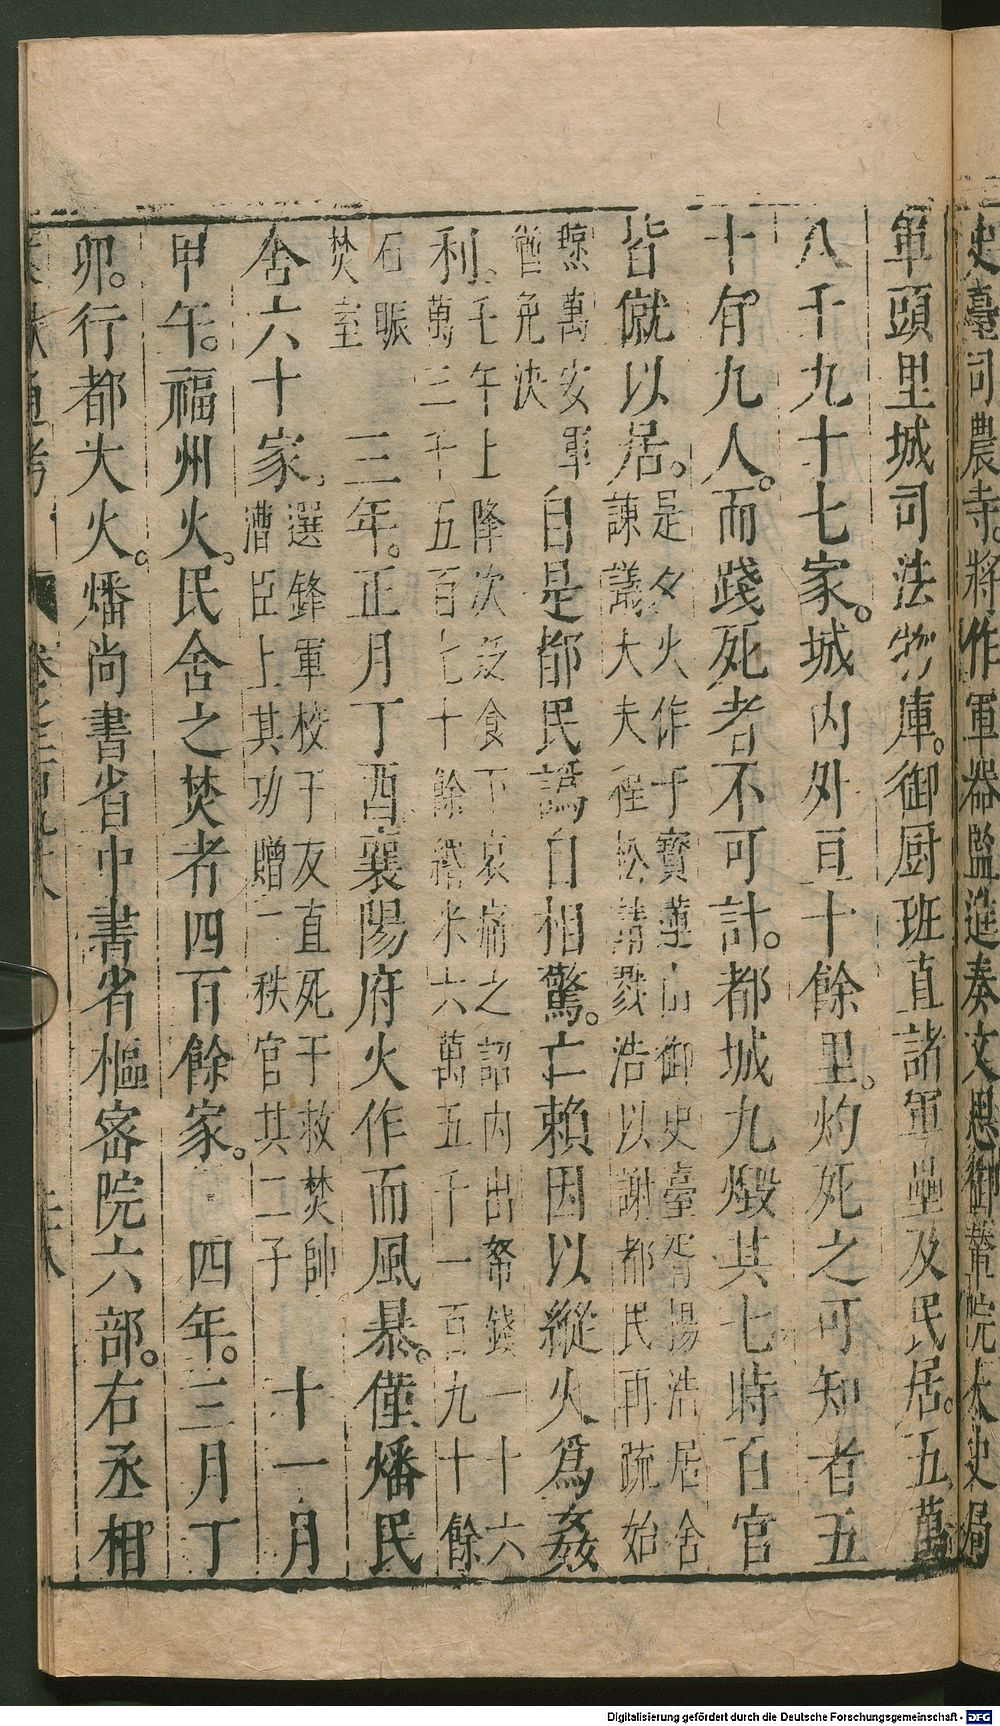 史臺司農寺。將作軍器監進奏文思御輦院太史局
軍頭里城司法物庫。御厨班直諸軍壘及民居。五萬
八千九十七家。城內外亘十餘里。灼死之可知者五
十有九人。而踐死者不可計。都城九燬其七時百官
皆僦以居。是夕火作于寶蓮山御史臺胥楊浩居舍諫議大夫程松請戮浩以謝都民再疏始
黥萬安軍猶免決 自是都民譌自相驚。亡賴因以縱火爲姦
利。壬午上降次食下哀痛之詔內出帑錢一十六萬三千五百七十餘緡米六萬五千一百九十餘
石賑焚室 三年。正月丁酉襄陽府火作而風暴。僅燔民
舍六十家。選鋒軍校于友直死于救焚帥漕臣上其功贈一秩官其二子 十一月
甲午。福州火。民舍之焚者四百餘家。 四年。三月丁
卯。行都大火。燔尚書省中書省樞密院六部。右丞相
通考
Digitalisierung gefördert durch die Deutsche Forschungsgemeinschaft - DFG